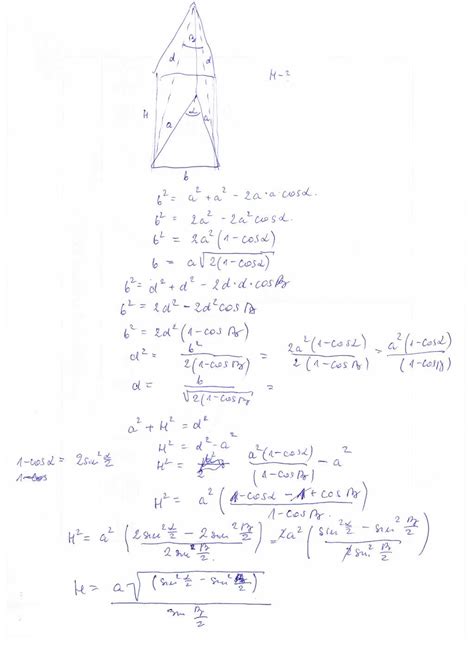 β
d d
H-?
H
α
a a
b
b² = a² + a² - 2a·a cosα.
b² = 2a² - 2a² cosα.
b² = 2a² (1-cosα)
b = a√(2(1-cosα))
b² = d² + d² - 2d·d·cosβ
b² = 2d² - 2d² cosβ
b² = 2d² (1-cosβ)
d² = b² / 2(1-cosβ) = 2a²(1-cosα) / 2(1-cosβ) = a²(1-cosα) / (1-cosβ)
d = b / √(2(1-cosβ)) =
a² + H² = d²
H² = d² - a²
1-cosα = 2sin² α/2
1-cos
H² = a²(1-cosα) / (1-cosβ) - a²
H² = a² ((1-cosα - 1 + cosβ) / (1-cosβ))
H² = a² ((2sin² α/2 - 2sin² β/2) / (2sin² β/2)) = 2a² ((sin² α/2 - sin² β/2) / (2sin² β/2))
H = a√(sin² α/2 - sin² β/2) / sin β/2